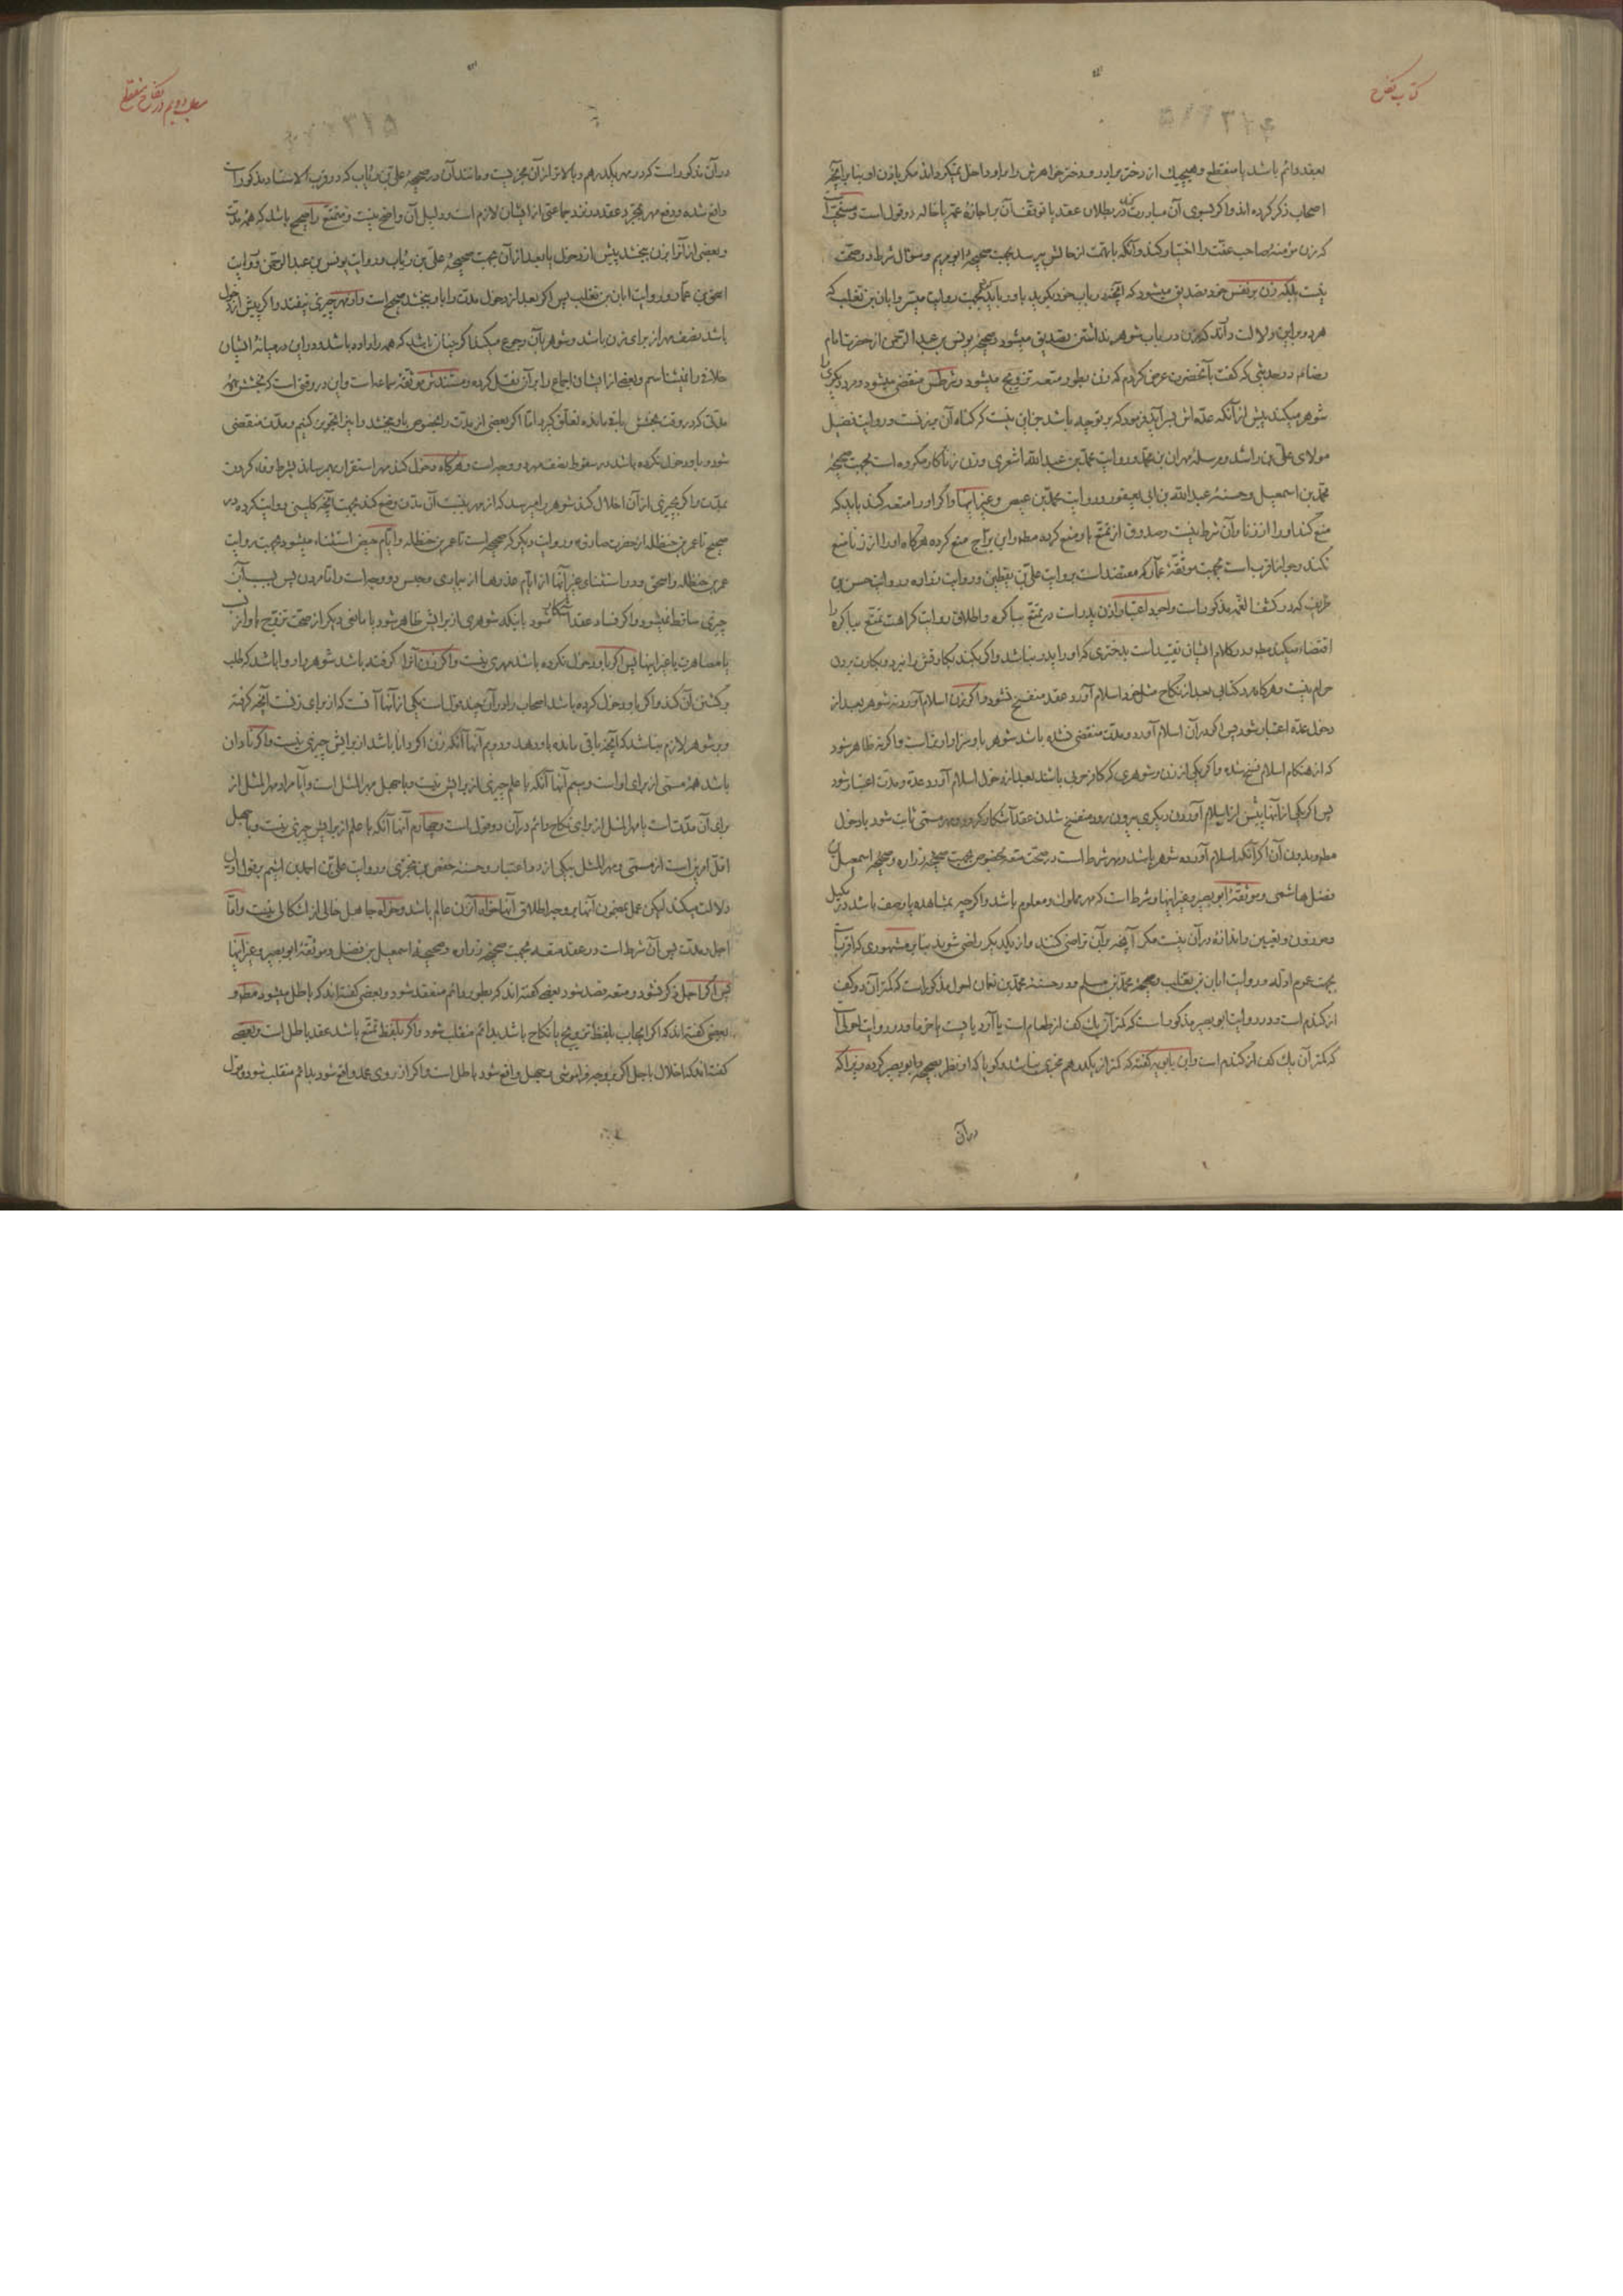 کتاب نکاح
بعقد دائم باشد یا منقطع و هیچیک از دختر برادر و دختر خواهر زن را بر او داخل نمیکرداند مکر باذن او بنا بر آنچه
اصحاب ذکر کرده اند و اکر بسوی آن مبادرت کند در بطلان عقد یا توقف آن بر اجازهٔ عمه یا خاله دو قول است و مستحبّ است
که زن مؤمنهٔ صاحب عفّت را اختیار کند و آنکه با تهمت از حالش بپرسد بجهت صحیحهٔ ابو مریم و سؤال شرط در صحّت
نیست بلکه زن بر نفس خود تصدیق میشود که آنچه در باب خود بکوید باور باید کرد بجهت روایت میسّر و ابان بن تغلب که
هر دو بر این دلالت دارند که زن در باب شوهر نداشتن تصدیق میشود و صحیحهٔ یونس بن عبد الرحمن از حضرت امام
رضا ع در حدیثی که کفت بآنحضرت عرض کردم که زن بطور متعه تزویج میشود و شرطش منقضی میشود و مرد دیکری را
شوهر میکند پیش از آنکه عدّه اش بسر آید فرمود که بر تو چه باشد جز این نیست که کناه آن بر زنست و روایت فضیل
مولای علی بن راشد و مرسلهٔ مهران بن محمد و روایت محمّد بن عبد الله اشعری و زن زناکار مکروه است بجهت صحیحهٔ
محمّد بن اسمعیل و حسنهٔ عبد الله بن ابی یعفور و روایت محمّد بن عیص و غیر اینها و اکر او را متعه کند باید که
منع کند او را از زنا و آن شرط نیست و صدوق از تمتّع باو منع کرده مطلقا و ابن برّاج منع کرده هرکاه او را از زنا منع
نکند و جواز اقرب است بجهت موثّقهٔ عمّار که معتضد است بروایت علی بن یقطین و روایت زراره و روایت حسن بن
ظریف که در کشف الغمّه مذکور است و احوط اعتبار اذن پدر است در تمتّع بباکره و اطلاق روایت کراهت تمتّع بباکره را
اقتضا میکند مطلقا و در کلام ایشان تقیید است بدختری که او را پدر نباشد و اکر بکند بکارتش را نبرد و بکارت بردن
حرام نیست و هرکاه مرد کتابی بعد از نکاح مثل خود اسلام آورد عقد منفسخ نشود و اکر زن اسلام آورد نه شوهر بعد از
دخول عدّه اعتبار شود پس اکر در آن اسلام آورد و مدّت منقضی نشده باشد شوهر باو سزاوارتر است و اکر نه ظاهر شود
که از هنکام اسلام فسخ شده و اکر یکی از زن و شوهری که کافر حربی باشند بعد از دخول اسلام آورد عدّه و مدّت اعتبار شود
پس اکر یکی از آنها پیش از اسلام آوردن دیکری بیرون رود منفسخ شدن عقد آشکار کردد و مهر مسمّی ثابت شود با دخول
مطلقا و بدون آن اکر آنکه اسلام آورده شوهر باشد و مهر شرط است در صحّت متعه بخصوص بجهت صحیحهٔ زراره و صحیحهٔ اسمعیل بن
فضل هاشمی و موثّقهٔ ابو بصیر و غیر اینها و شرط است که مهر مملوک و معلوم باشد و اکر چه بمشاهده یا وصف باشد در مکیل
و موزون و تعیین و اندازه در آن نیست مکر آنچه بر آن تراضی کنند و از یکدیکر راضی شوند بنا بر مشهوری که اقرب است
بجهت عموم ادلّه و روایت ابان بن تغلب و صحیحهٔ محمّد بن مسلم و در حسنهٔ محمّد بن نعمان احول مذکور است که کمتر آن دو کف
از کندم است و در روایت ابو بصیر مذکور است که کمتر آن یک کف از طعام است یا آرد یا سویق یا خرما و در روایت احول است
که کمتر آن یک کف از کندم است و ابن بابویه کفته که کمتر از یکدرهم مجزی نباشد و کویا که او نظر بصحیحهٔ ابو بصیر کرده زیرا که
در آن
مطلب دویم در نکاح منقطع
در آن مذکور است که در مهر یکدرهم و بالاتر از آن مجزیست و مانند آن در صحیحهٔ علی بن رئاب که در قرب الاسناد مذکور است
واقع شده و دفع مهر بمجرّد عقد در نزد جماعتی از ایشان لازم است و دلیل آن واضح نیست و متمتّع را صحیح باشد که همهٔ مدّت
و بعضی از آنرا بزن ببخشد پیش از دخول یا بعد از آن بجهت صحیحهٔ علی بن رئاب و روایت یونس بن عبد الرحمن و روایت
اسحق بن عمّار و روایت ابان بن تغلب پس اکر بعد از دخول مدّت را باو ببخشد صحیح است و از مهر چیزی نیفتد و اکر پیش از دخول
باشد نصف مهر از برای زن باشد و شوهر بآن رجوع میکند اکر چنان باشد که همه را داده باشد و در این در میانهٔ ایشان
خلافی را نمیشناسم و بعض از ایشان اجماع را بر آن نقل کرده و مستندش موثّقهٔ سماعه است و این در وقتی است که بخشش بهمهٔ
مدّت که در وقت بخشش باقی مانده تعلّق کیرد امّا اکر بعضی از مدّت را بخصوص باو ببخشد و این را تجویز کنیم و مدّت منقضی
شود و باو دخول نکرده باشد در سقوط نصف مهر دو وجه است و هرکاه دخول کند مهر استقرار بهم رساند بشرط وفا کردن
بمدّت و اکر بچیزی از آن اخلال کند شوهر را میرسد که از مهر بنسبت آن مدّت وضع کند بجهت آنچه کلینی روایت کرده در
صحیح تا عمر بن حنظله از حضرت صادق ع و روایت دیکر که صحیحه است تا عمر بن حنظله و ایّام حیض استثناء میشود بجهت روایت
عمر بن حنظله و اسحق و در استثنای غیر آنها از ایّام عذرها از بیماری و حبس دو وجه است و امّا مردن پس بسبب آن
چیزی ساقط نمیشود و اکر فساد عقد آشکار شود باینکه شوهری از برایش ظاهر شود یا مانعی دیکر از صحّت تزویج باو از نسب
یا مصاهرت یا غیر اینها پس اکر باو دخول نکرده باشد مهری نیست و اکر زن آنرا کرفته باشد شوهر را روا باشد که طلب
برکشتن آن کند و اکر باو دخول کرده باشد اصحاب را در آن چند قول است یکی از آنها آنست که از برای زنست آنچه کرفته
و بر شوهر لازم نباشد که آنچه باقی مانده باو دهد و دویم آنها آنکه زن اکر دانا باشد از برایش چیزی نیست و اکر نادان
باشد همهٔ مسمّی از برای او است و سیم آنها آنکه با علم چیزی از برایش نیست و با جهل مهر المثل است و آیا مراد مهر المثل از
برای آن مدّت است یا مهر المثل از برای نکاح دائم در آن دو قول است و چهارم آنها آنکه با علم از برایش چیزی نیست و با جهل
اقلّ امرین است از مسمّی و مهر المثل بیکی از دو اعتبار و حسنهٔ حفص بن بختری و روایت علی بن احمد بن اشیم بر قول اول
دلالت میکند لیکن عمل بمضمون آنها بر وجه اطلاق آنها خواه آن زن عالم باشد و خواه جاهل خالی از اشکال نیست و امّا
اجل و مدّت پس آن شرط است در عقد متعه بجهت صحیحهٔ زراره و صحیحهٔ اسمعیل بن فضل و موثّقهٔ ابو بصیر و غیر اینها
پس اکر اجل ذکر نشود و متعه قصد شود بعضی کفته اند که بطور دائم منعقد شود و بعضی کفته اند که باطل میشود مطلقا و
بعضی کفته اند که اکر ایجاب بلفظ تزویج یا نکاح باشد بدائم منقلب شود و اکر بلفظ تمتّع باشد عقد باطل است و بعضی
کفته اند که اخلال باجل اکر بر وجه فراموشی و جهل واقع شود باطل است و اکر از روی عمد واقع شود بدائم منقلب شود و قول